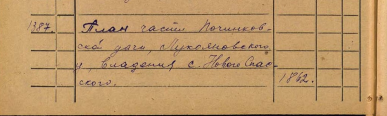 1387. План части Починков-
ской дачи, Лукояновского
у. владения с. Нового Спас-
ского. 1862.